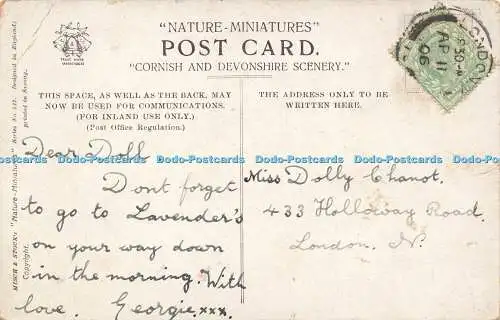 "NATURE-MINIATURES"
POST CARD.
"CORNISH AND DEVONSHIRE SCENERY."
THIS SPACE, AS WELL AS THE BACK, MAY
NOW BE USED FOR COMMUNICATIONS.
(FOR INLAND USE ONLY.)
(Post Office Regulation.)
THE ADDRESS ONLY TO BE
WRITTEN HERE.
LONDON
5.30
AP 11
06
Dear Doll
Dont forget
to go to Lavender's
on your way down
in the morning. With
love. Georgie. xxx.
Miss Dolly Chanot.
433 Holloway Road.
London. N.
MISCH & STOCK'S "Nature-Miniatures" Series No.
Designed in England.
Copyright.
Dodo-Postcards Dodo-Postcards Dodo-Postcards Dodo-Postcards Dodo-Postcards